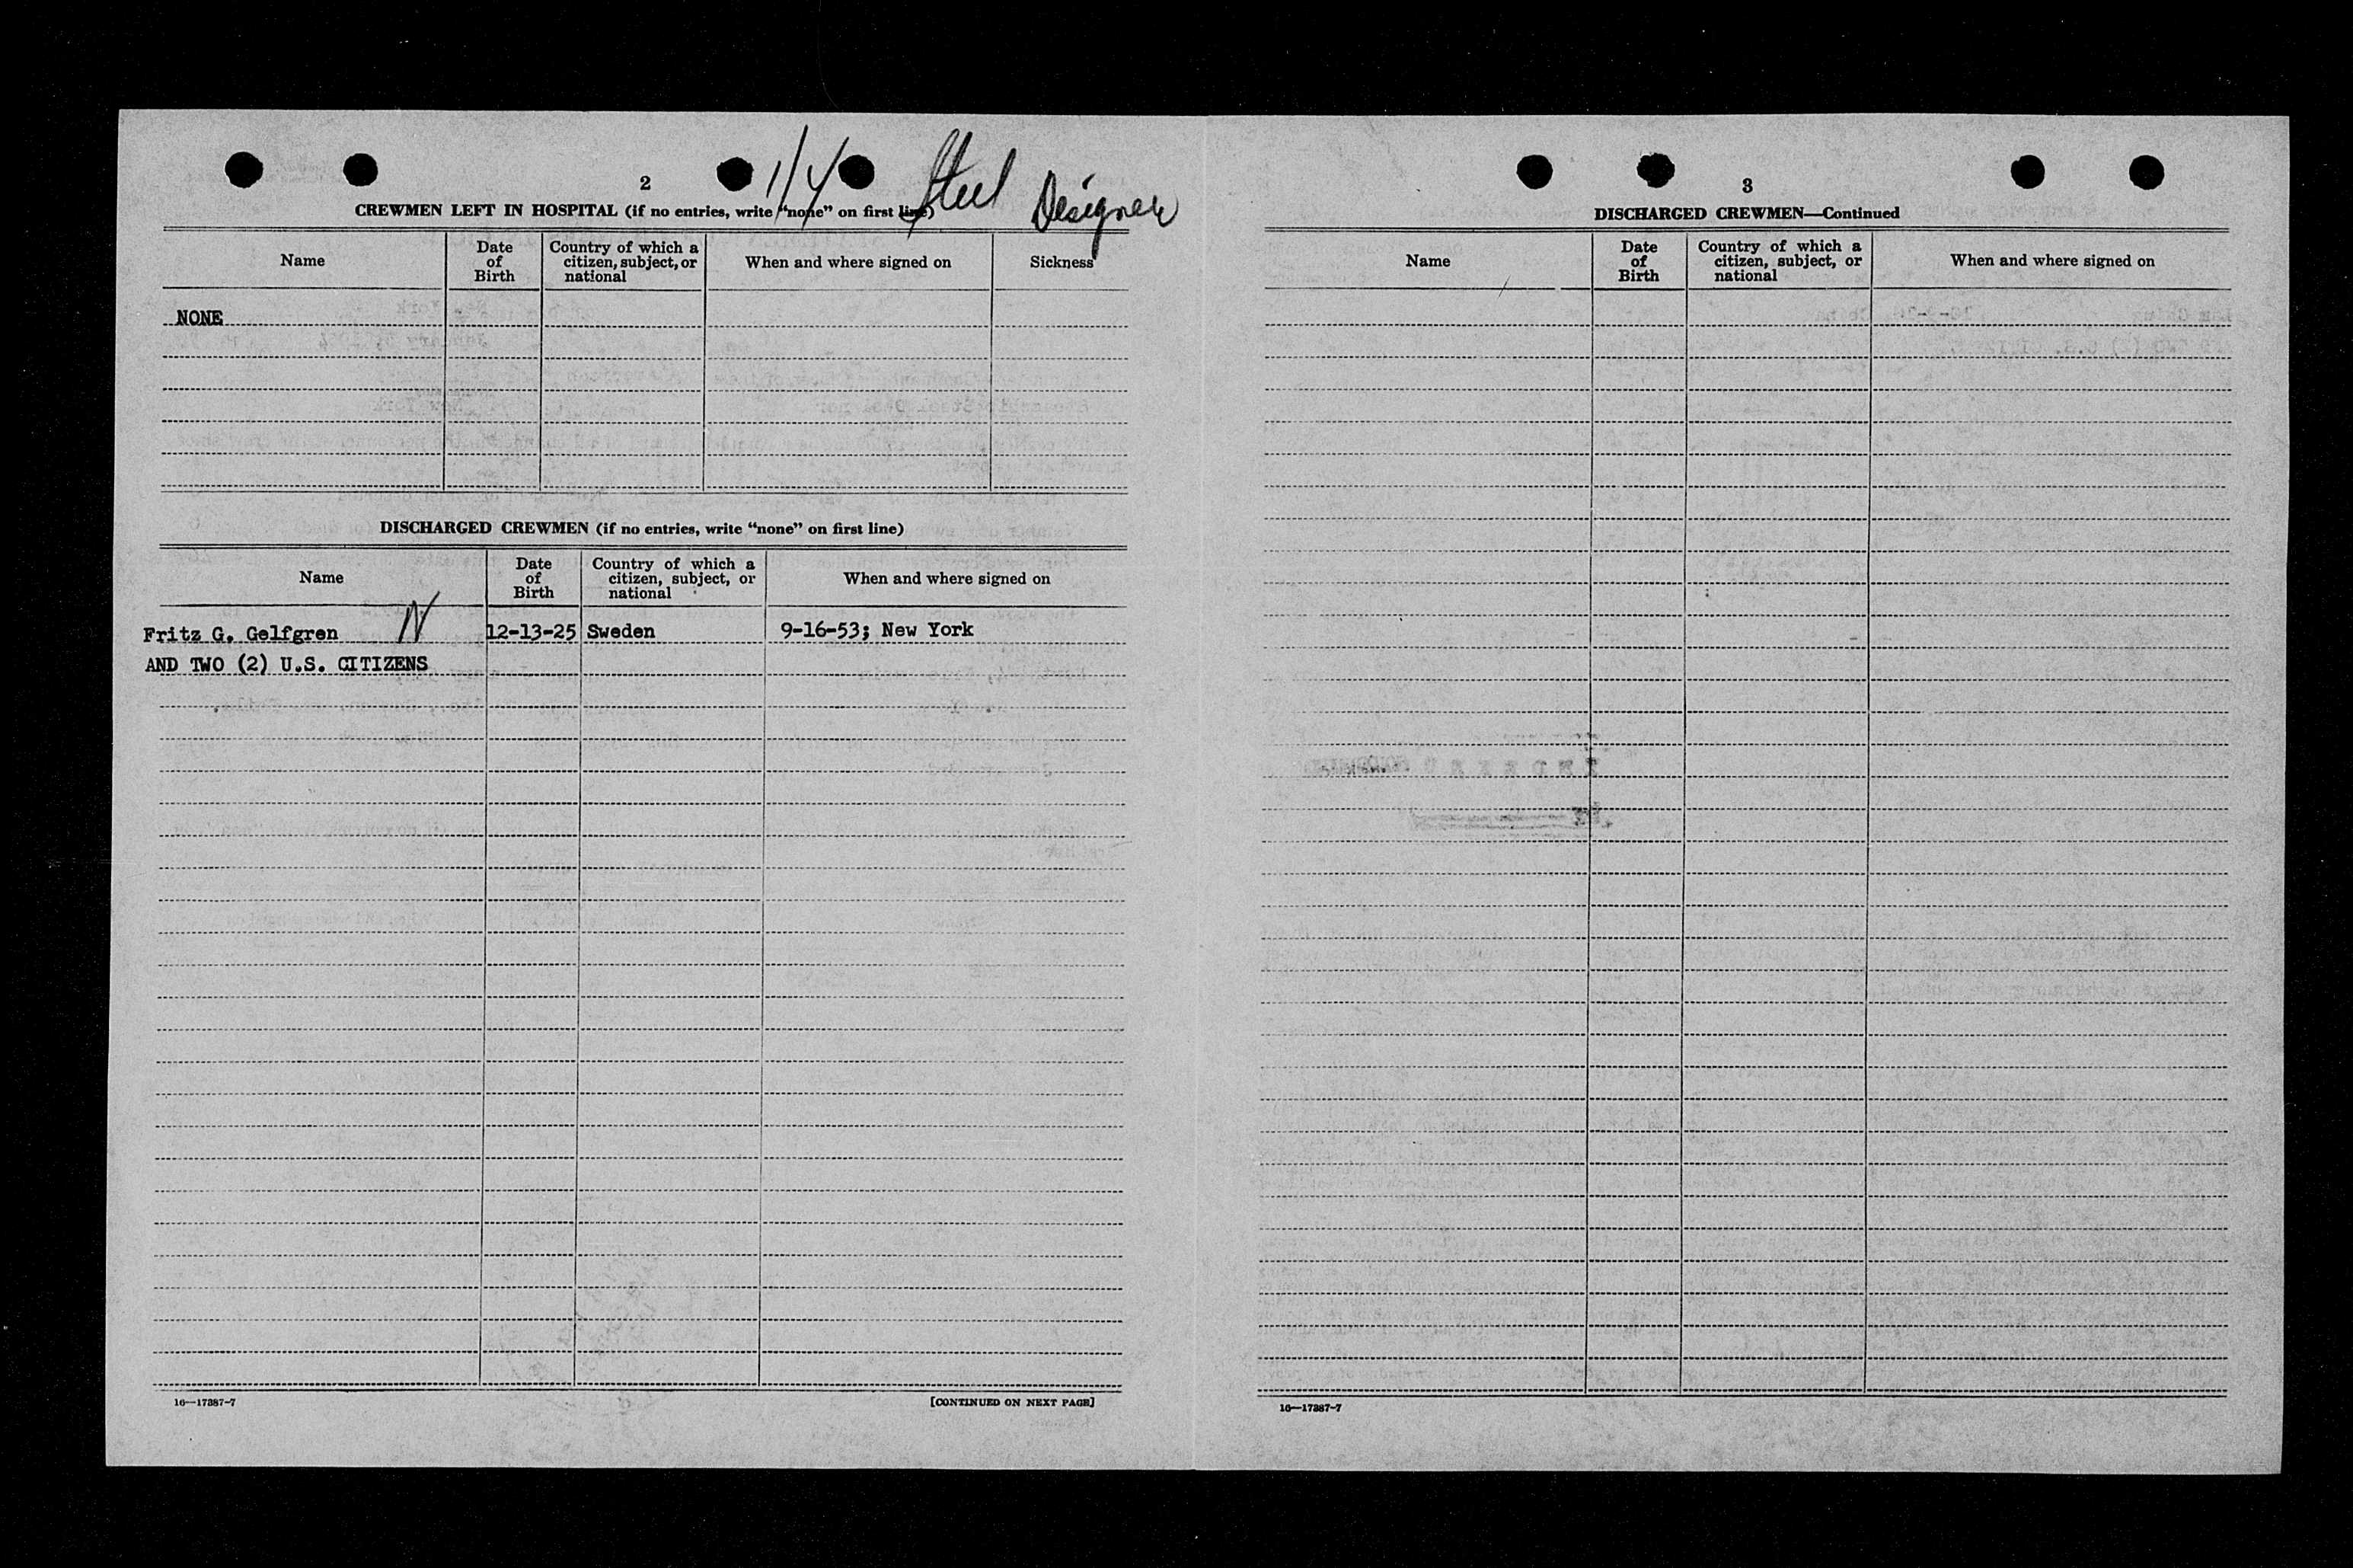 1/4 Steel Designer
2
CREWMEN LEFT IN HOSPITAL (if no entries, write "none" on first line)
Name
Date of Birth
Country of which a citizen, subject, or national
When and where signed on
Sickness
NONE
DISCHARGED CREWMEN (if no entries, write "none" on first line)
Name
Date of Birth
Country of which a citizen, subject, or national
When and where signed on
Fritz G. Gelfgren N 12-13-25 Sweden 9-16-53; New York
AND TWO (2) U.S. CITIZENS
16—17387-7
[CONTINUED ON NEXT PAGE]
3
DISCHARGED CREWMEN—Continued
Name
Date of Birth
Country of which a citizen, subject, or national
When and where signed on
16—17387-7